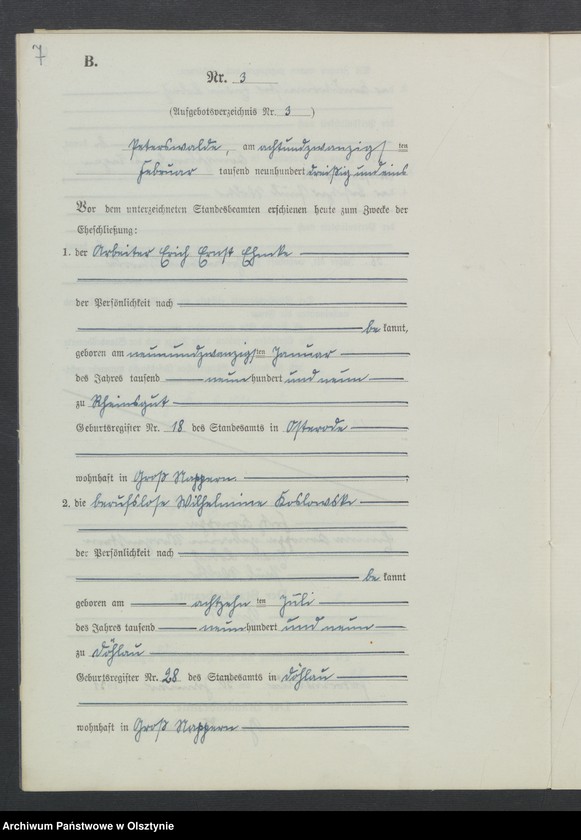 7
B.
Nr. 3
(Aufgebotsverzeichnis Nr. 3)
Peterswalde, am achtundzwanzigsten
Februar tausend neunhundert dreißig und eins
Vor dem unterzeichneten Standesbeamten erschienen heute zum Zwecke der
Eheschließung:
1. der Arbeiter Erich Ernst
der Persönlichkeit nach
be kannt,
geboren am neunundzwanzigsten Januar
des Jahres tausend neunhundert und neun
zu Rheinsgut
Geburtsregister Nr. 18 des Standesamts in Osterode
wohnhaft in Groß Nappern
2. die berufslose Wilhelmine Koslowski
der Persönlichkeit nach
be kannt
geboren am achtzehn ten Juli
des Jahres tausend neunhundert und neun
zu Döhlau
Geburtsregister Nr. 28 des Standesamts in Döhlau
wohnhaft in Groß Nappern
Archiwum Państwowe w Olsztynie